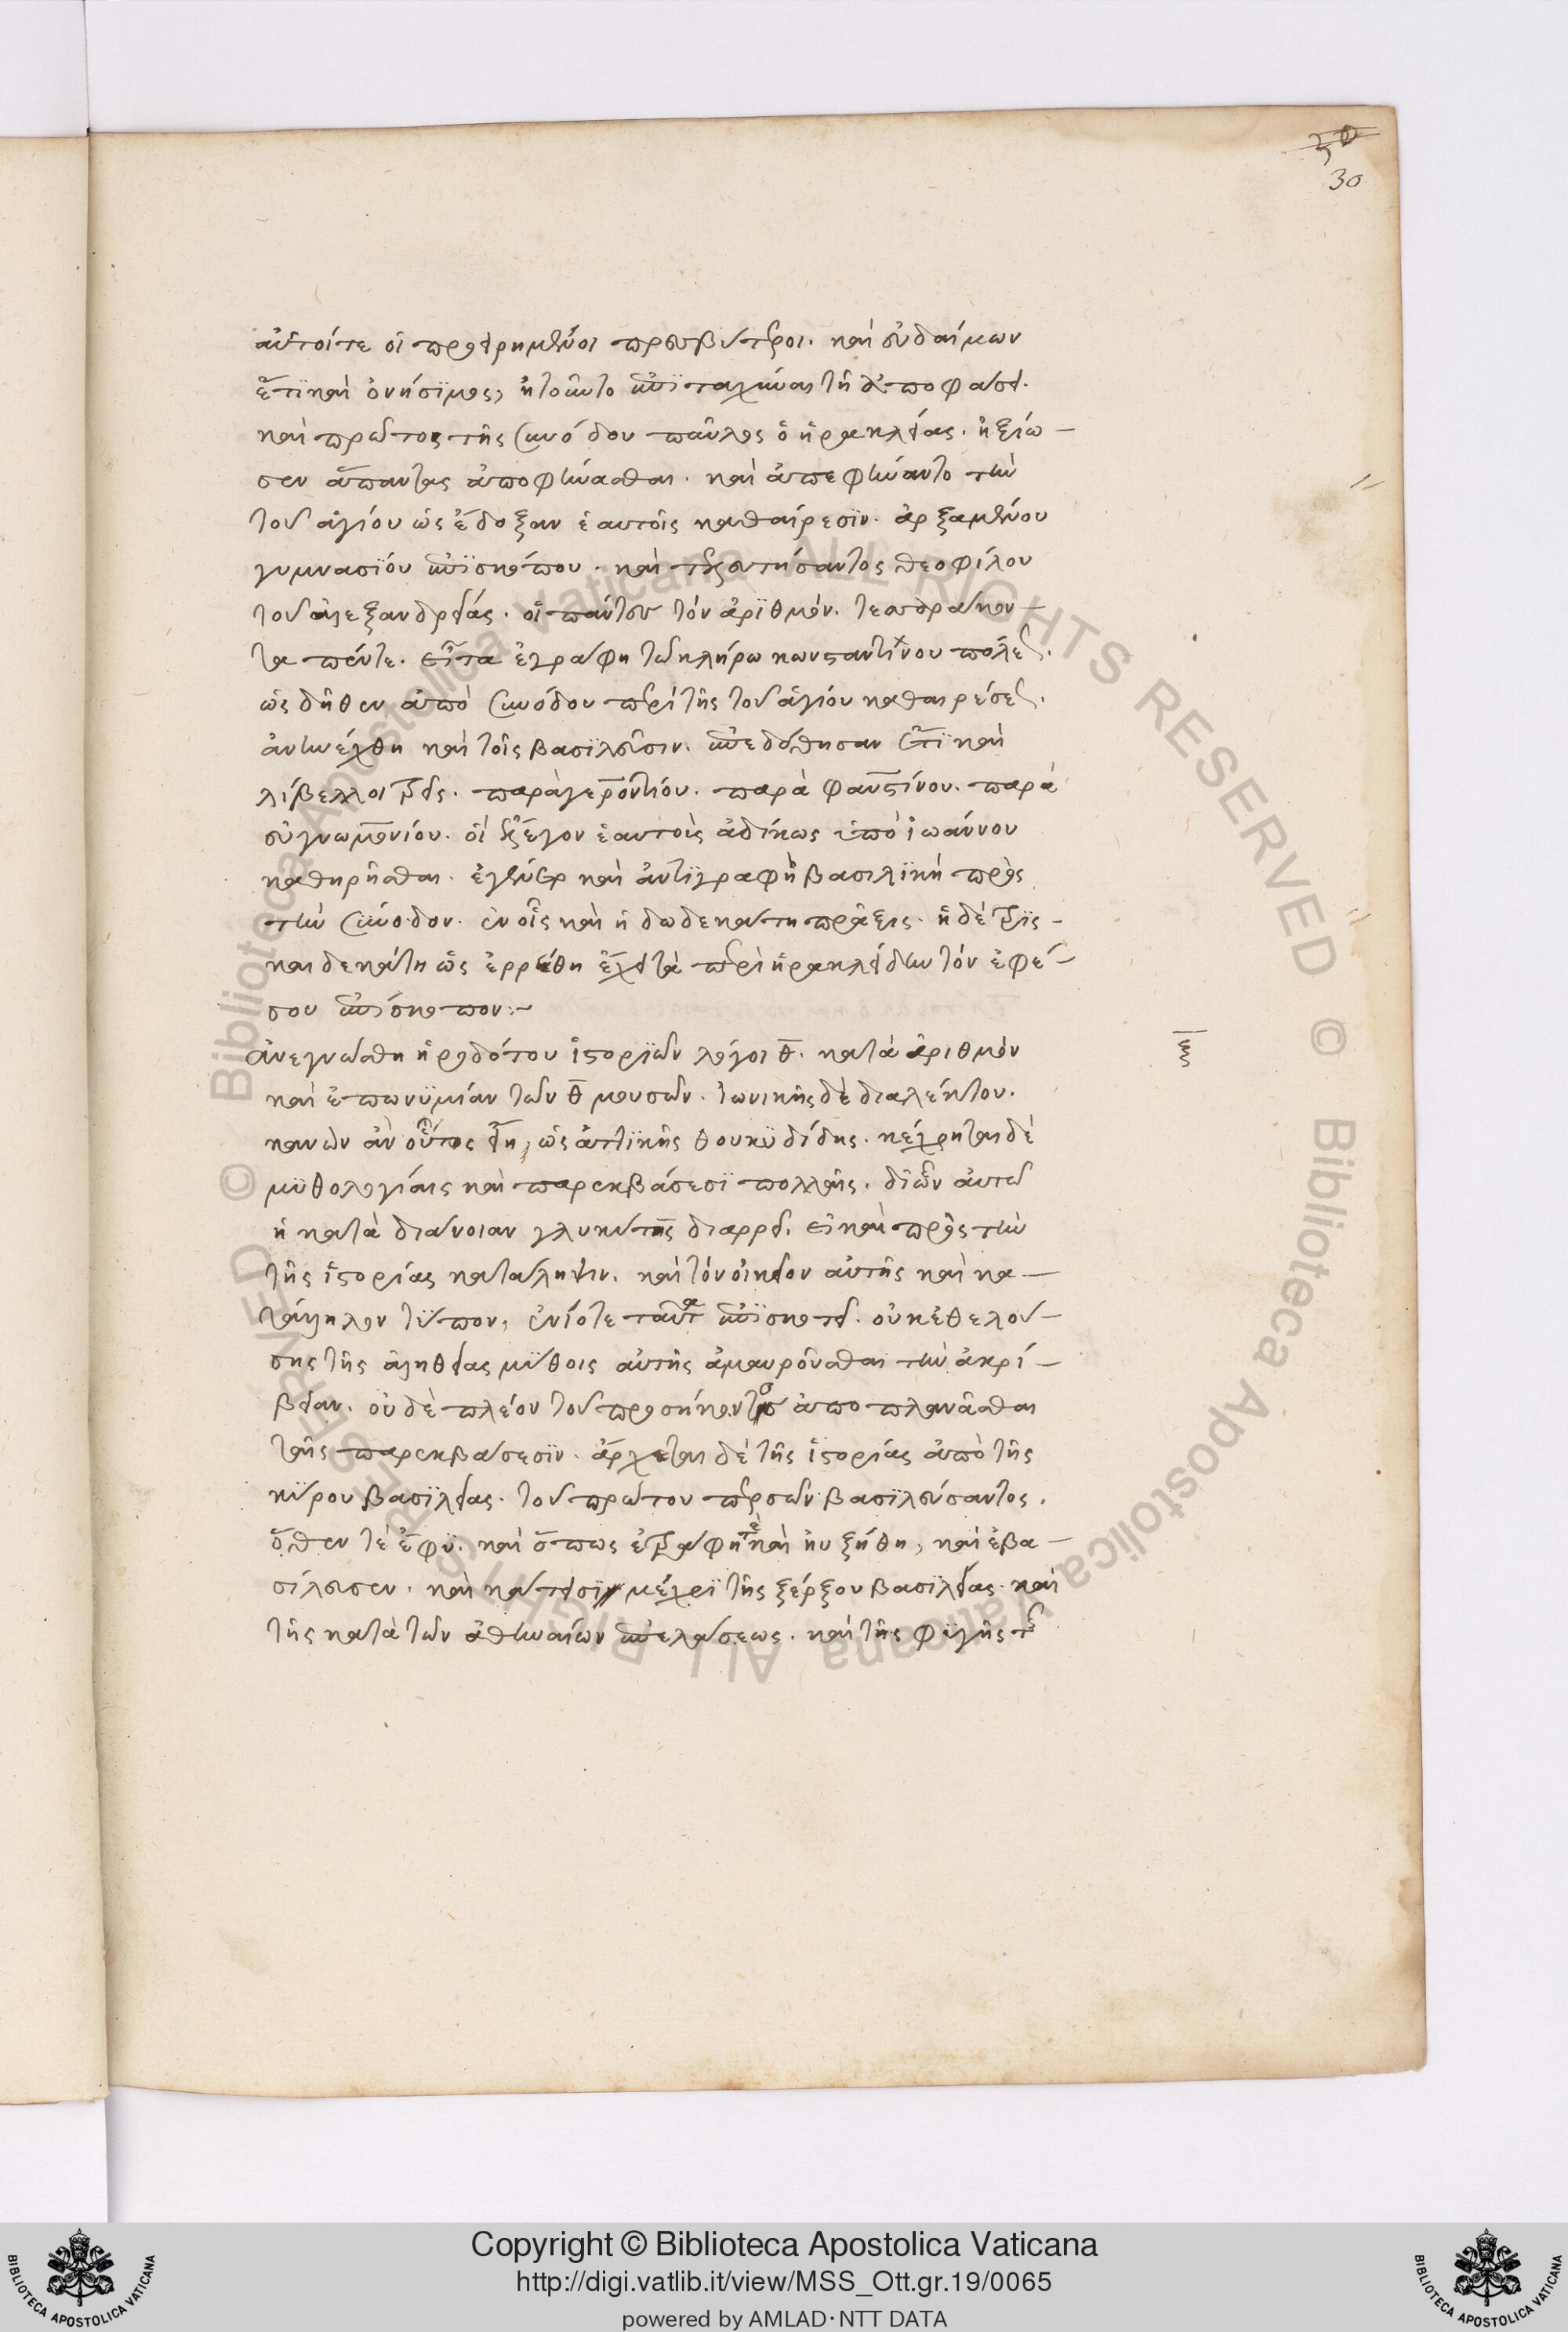 30
30
αὐτοί τε οἱ προειρημένοι πρεσβύτεροι. καὶ εὐδαίμων
ἔτι καὶ ὀνήσϊμος, ᾐτοῦντο ἐπϊταχῦναι τὴν ἀπόφασϊν.
καὶ πρῶτος τῆς συνόδου παῦλος ὁ ἡρακλείας. ἠξίω-
σεν ἅπαντας ἀποφήνασθαι. καὶ ἀπεφήναντο τὴν
τοῦ ἁγίου ὡς ἔδοξαν ἑαυτοῖς καθαίρεσϊν. ἀρξαμένου
γυμνασϊου ἐπϊσκόπου. καὶ τελευτήσαντος θεοφίλου
τοῦ ἀλεξανδρείας. οἳ πάντες τὸν ἀρϊθμὸν. τεσσράκον-
τα πέντε. εἶτα ἐγράφη τῶ κλήρω κωνσταντίνου πόλεως.
ὡς δῆθεν ἀπὸ συνόδου περὶ τῆς τοῦ ἁγίου καθαιρέσεως.
ἀνηνέχθη καὶ τοῖς βασϊλεῦσιν. ἐπεδόθησαν ἔτϊ καὶ
λίβελλοι τρεῖς. παρὰ γεροντίου. παρὰ φαυστίνου. παρὰ
εὐγνωμονίου. οἳ ἔλεγον ἑαυτοὺς ἀδίκως ὑπὸ ἰωάννου
καθηρῆσθαι. ἐγένετο καὶ ἀντϊγραφὴ βασιλϊκὴ πρὸς
τὴν σύνοδον. ἐν οἷς καὶ ἡ δωδεκάτη πρᾶξις. ἡ δὲ τρϊς-
καιδεκάτη ὡς ἐρρήθη ἔχει τὰ περὶ ἡρακλείδην τὸν ἐφέ-
σου ἐπίσκοπον:~
Ἀνεγνώσθη ἡροδότου ἱστορϊῶν λόγοι θ̅. κατὰ ἀριθμὸν
ξ̅
καὶ ἐπωνϋμίαν τῶν θ̅ μουσῶν. ἰωνικῆς δὲ διαλέκτου.
κανὼν ἂν οὗτος εἴη, ὡς ἀττϊκῆς θουκϋδίδης. κέχρηται δὲ
μϋθολογίαις καὶ παρεκβάσεσϊ πολλαῖς. δϊ ὧν αὐτῶ
ἡ κατὰ διάνοιαν γλυκύτης διαρρεῖ. εἰ καὶ πρὸς τὴν
τῆς ἱστορίας κατάληψιν. καὶ τὸν οἰκεῖον αὐτῆς καὶ κα-
τάλληλον τύπον, ἐνίοτε ταῦτα ἐπϊσκοτεῖ. οὐκ ἐθελού-
σης τῆς ἀληθείας μύθοις αὐτῆς ἀμαυροῦσθαι τὴν ἀκρί-
βειαν. οὐδὲ πλέον τοῦ προσήκοντος ἀποπλανᾶσθαι
ταῖς παρεκβάσεσϊν. ἄρχεται δὲ τῆς ἱστορίας ἀπὸ τῆς
κύρου βασϊλείας. τοῦ πρώτου περσῶν βασϊλεύσαντος.
ὅθεν τὲ ἔφϋ. καὶ ὅπως ἐτράφη τὲ καὶ ηὐξήθη, καὶ ἐβα-
σίλευσεν. καὶ κάτεισϊ μέχρϊ τῆς ξέρξου βασϊλείας. καὶ
τῆς κατὰ τῶν ἀθηναίων ἐπελάσεως. καὶ τῆς φϋγῆς τῆς
Copyright © Biblioteca Apostolica Vaticana
http://digi.vatlib.it/view/MSS_Ott.gr.19/0065
powered by AMLAD·NTT DATA
BIBLIOTECA APOSTOLICA VATICANA
BIBLIOTECA APOSTOLICA VATICANA
© Biblioteca Apostolica Vaticana ALL RIGHTS RESERVED © Biblioteca Apostolica Vaticana ALL RIGHTS RESERVED